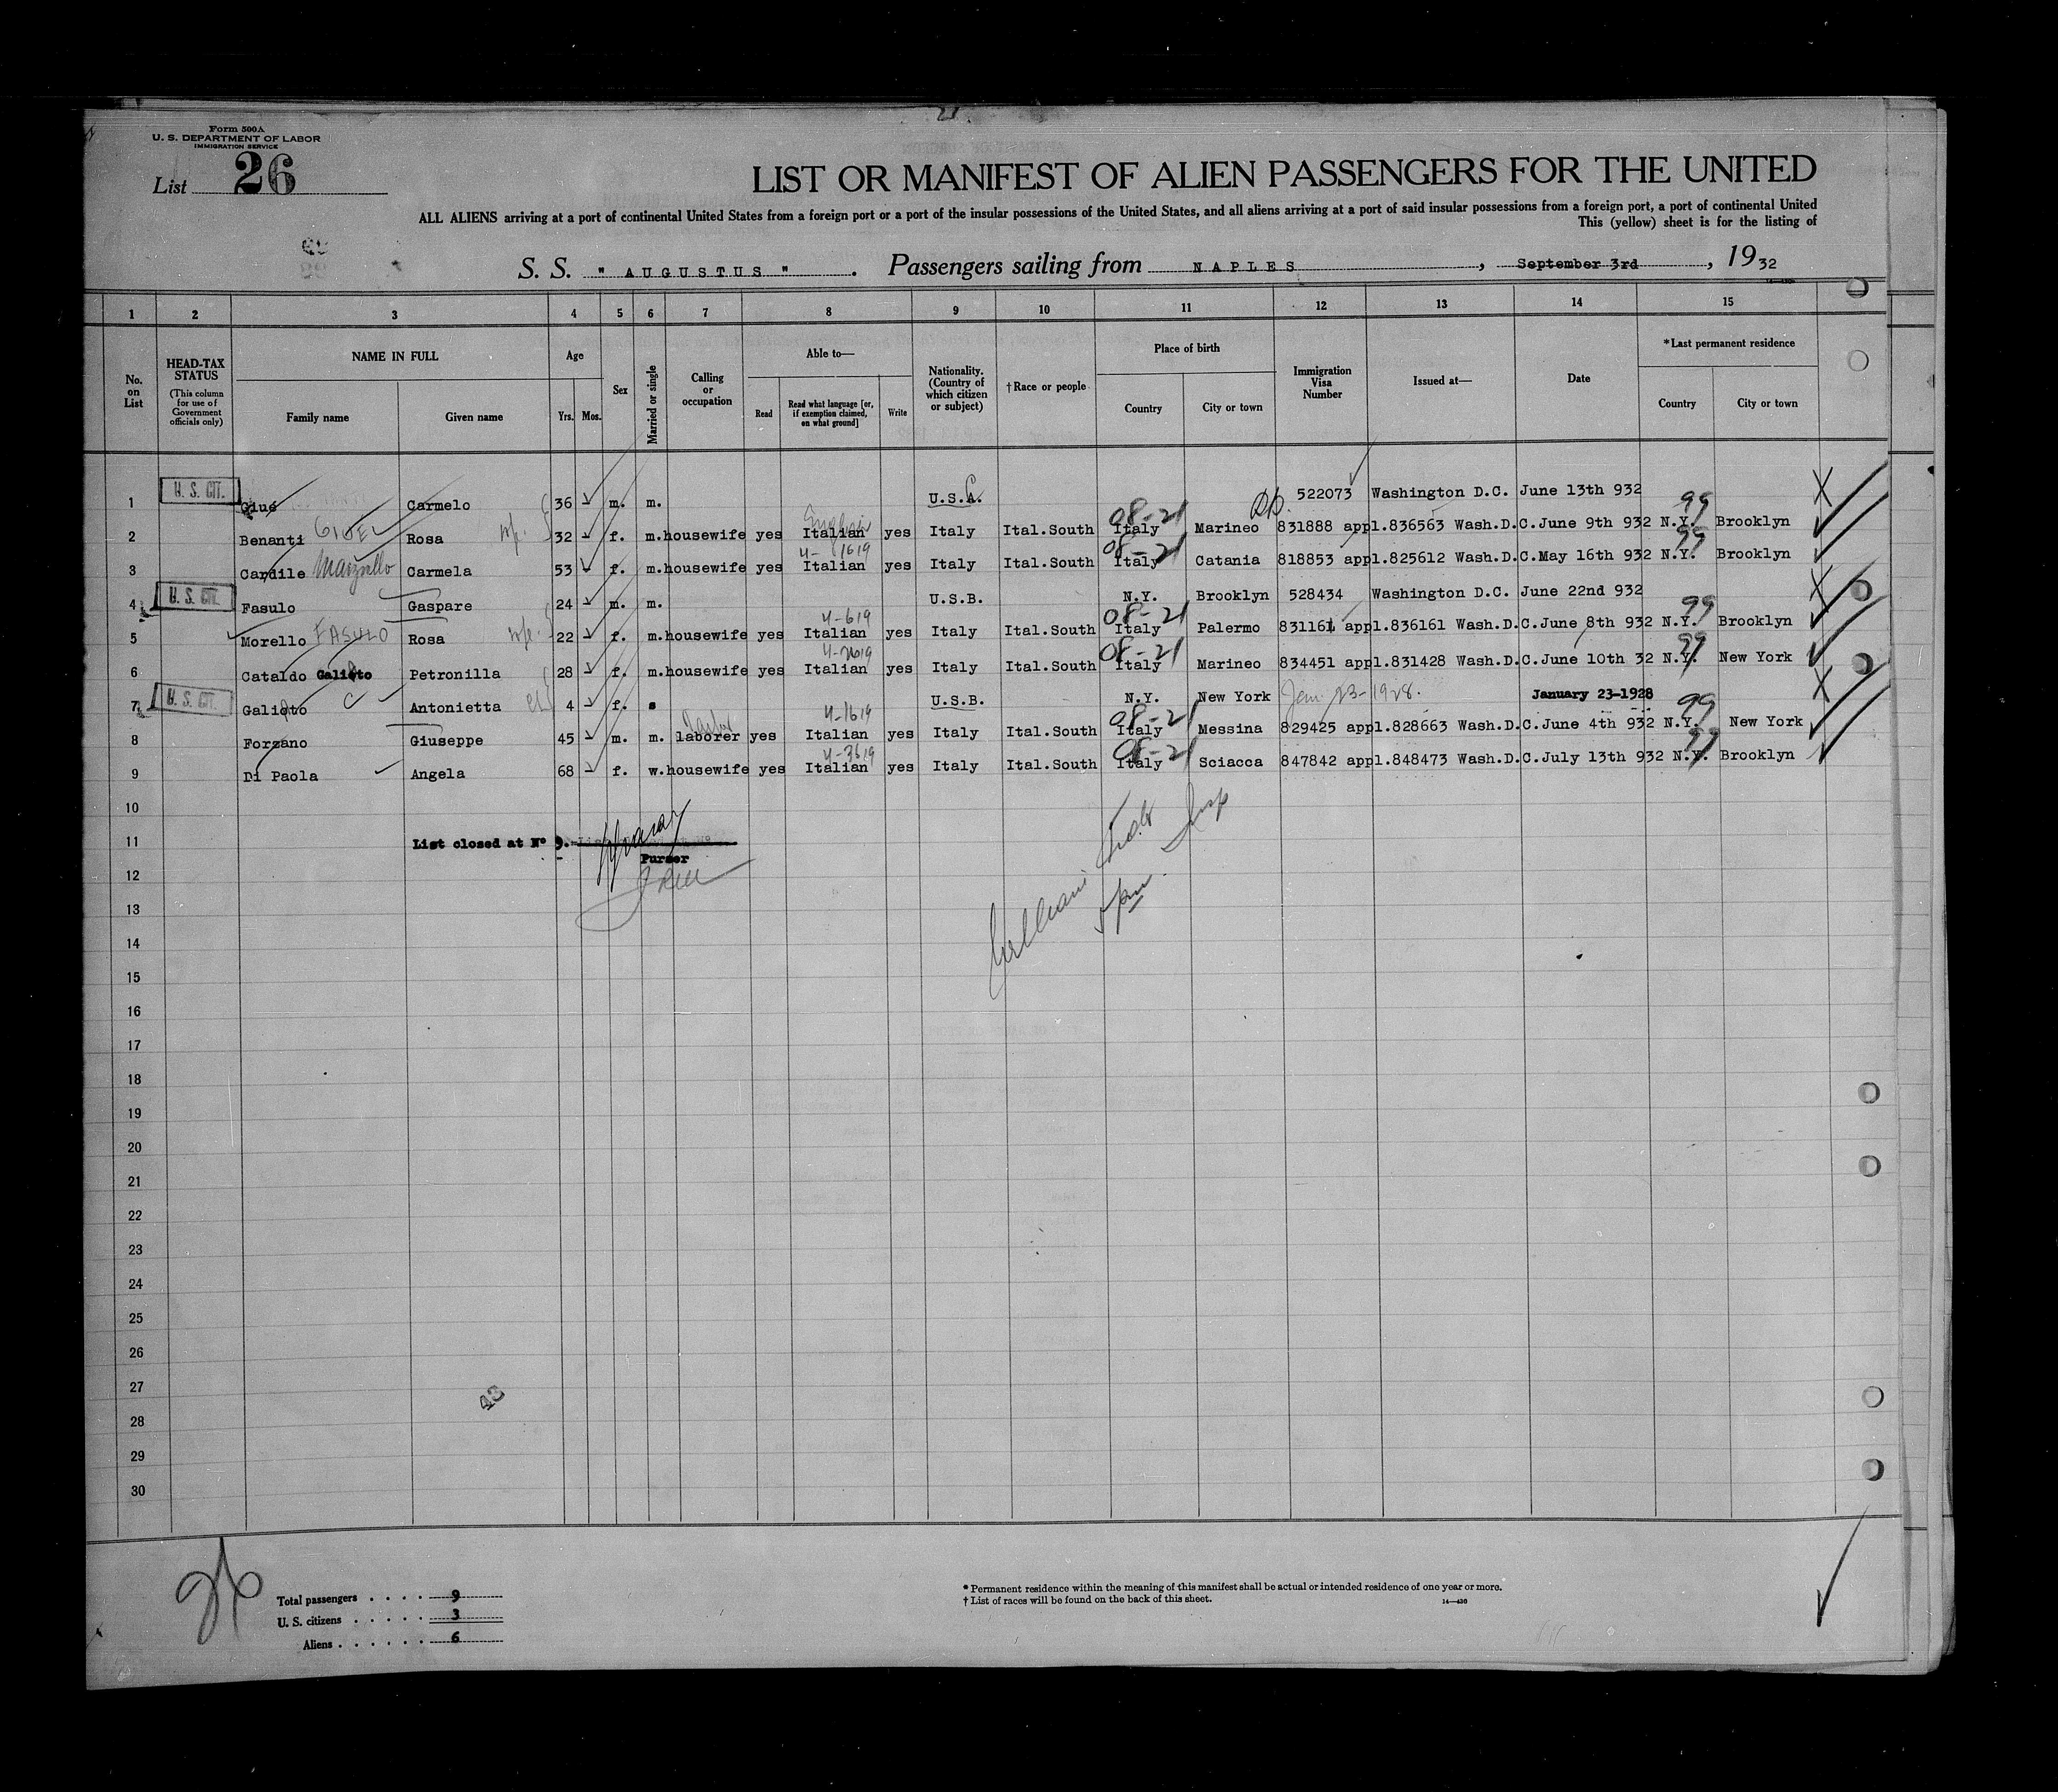 Form 500A
U. S. DEPARTMENT OF LABOR
IMMIGRATION SERVICE
List 26
LIST OR MANIFEST OF ALIEN PASSENGERS FOR THE UNITED
ALL ALIENS arriving at a port of continental United States from a foreign port or a port of the insular possessions of the United States, and all aliens arriving at a port of said insular possessions from a foreign port, a port of continental United
This (yellow) sheet is for the listing of
S. S. "AUGUSTUS". Passengers sailing from NAPLES, September 3rd, 1932
1 2 3 4 5 6 7 8 9 10 11 12 13 14 15
No. on List
HEAD-TAX STATUS
(This column for use of Government officials only)
NAME IN FULL
Family name
Given name
Age
Yrs. Mos.
Sex
Married or single
Calling or occupation
Able to—
Read
Read what language [or, if exemption claimed, on what ground]
Write
Nationality. (Country of which citizen or subject)
†Race or people
Place of birth
Country
City or town
Immigration Visa Number
Issued at—
Date
*Last permanent residence
Country
City or town
1 U. S. CIT. Giué Carmelo 36 m. m. U.S.A. 522073 Washington D.C. June 13th 932
2 Benanti Rosa 32 f. m. housewife yes Italian English yes Italy Ital.South Italy 08-21 Marineo 831888 appl.836563 Wash.D.C. June 9th 932 N.Y. 99 Brooklyn
3 Cardile Carmela 53 f. m. housewife yes Italian 4-1619 yes Italy Ital.South Italy 08-21 Catania 818853 appl.825612 Wash.D.C. May 16th 932 N.Y. 99 Brooklyn
4 U. S. CIT. Fasulo Gaspare 24 m. m. U.S.B. N.Y. Brooklyn 528434 Washington D.C. June 22nd 932
5 Morello FASULO Rosa wf. 22 f. m. housewife yes Italian 4-619 yes Italy Ital.South Italy 08-21 Palermo 831161 appl.836161 Wash.D.C. June 8th 932 N.Y. 99 Brooklyn
6 Cataldo Galioto Petronilla 28 f. m. housewife yes Italian yes Italy Ital.South Italy 08-21 Marineo 834451 appl.831428 Wash.D.C. June 10th 32 N.Y. 99 New York
7 U. S. CIT. Galioto Antonietta 4 f. s U.S.B. N.Y. New York Jan. 23-1928. January 23-1928
8 Forzano Giuseppe 45 m. m. laborer yes Italian 4-1619 yes Italy Ital.South Italy 08-21 Messina 829425 appl.828663 Wash.D.C. June 4th 932 N.Y. 99 New York
9 Di Paola Angela 68 f. w. housewife yes Italian 4-3619 yes Italy Ital.South Italy 08-21 Sciacca 847842 appl.848473 Wash.D.C. July 13th 932 N.Y. 99 Brooklyn
10
11 List closed at No 9.
Purser
12
13
14
15
16
17
18
19
20
21
22
23
24
25
26
27
28
29
30
43
Total passengers 9
U. S. citizens 3
Aliens 6
* Permanent residence within the meaning of this manifest shall be actual or intended residence of one year or more.
† List of races will be found on the back of this sheet.
14—430